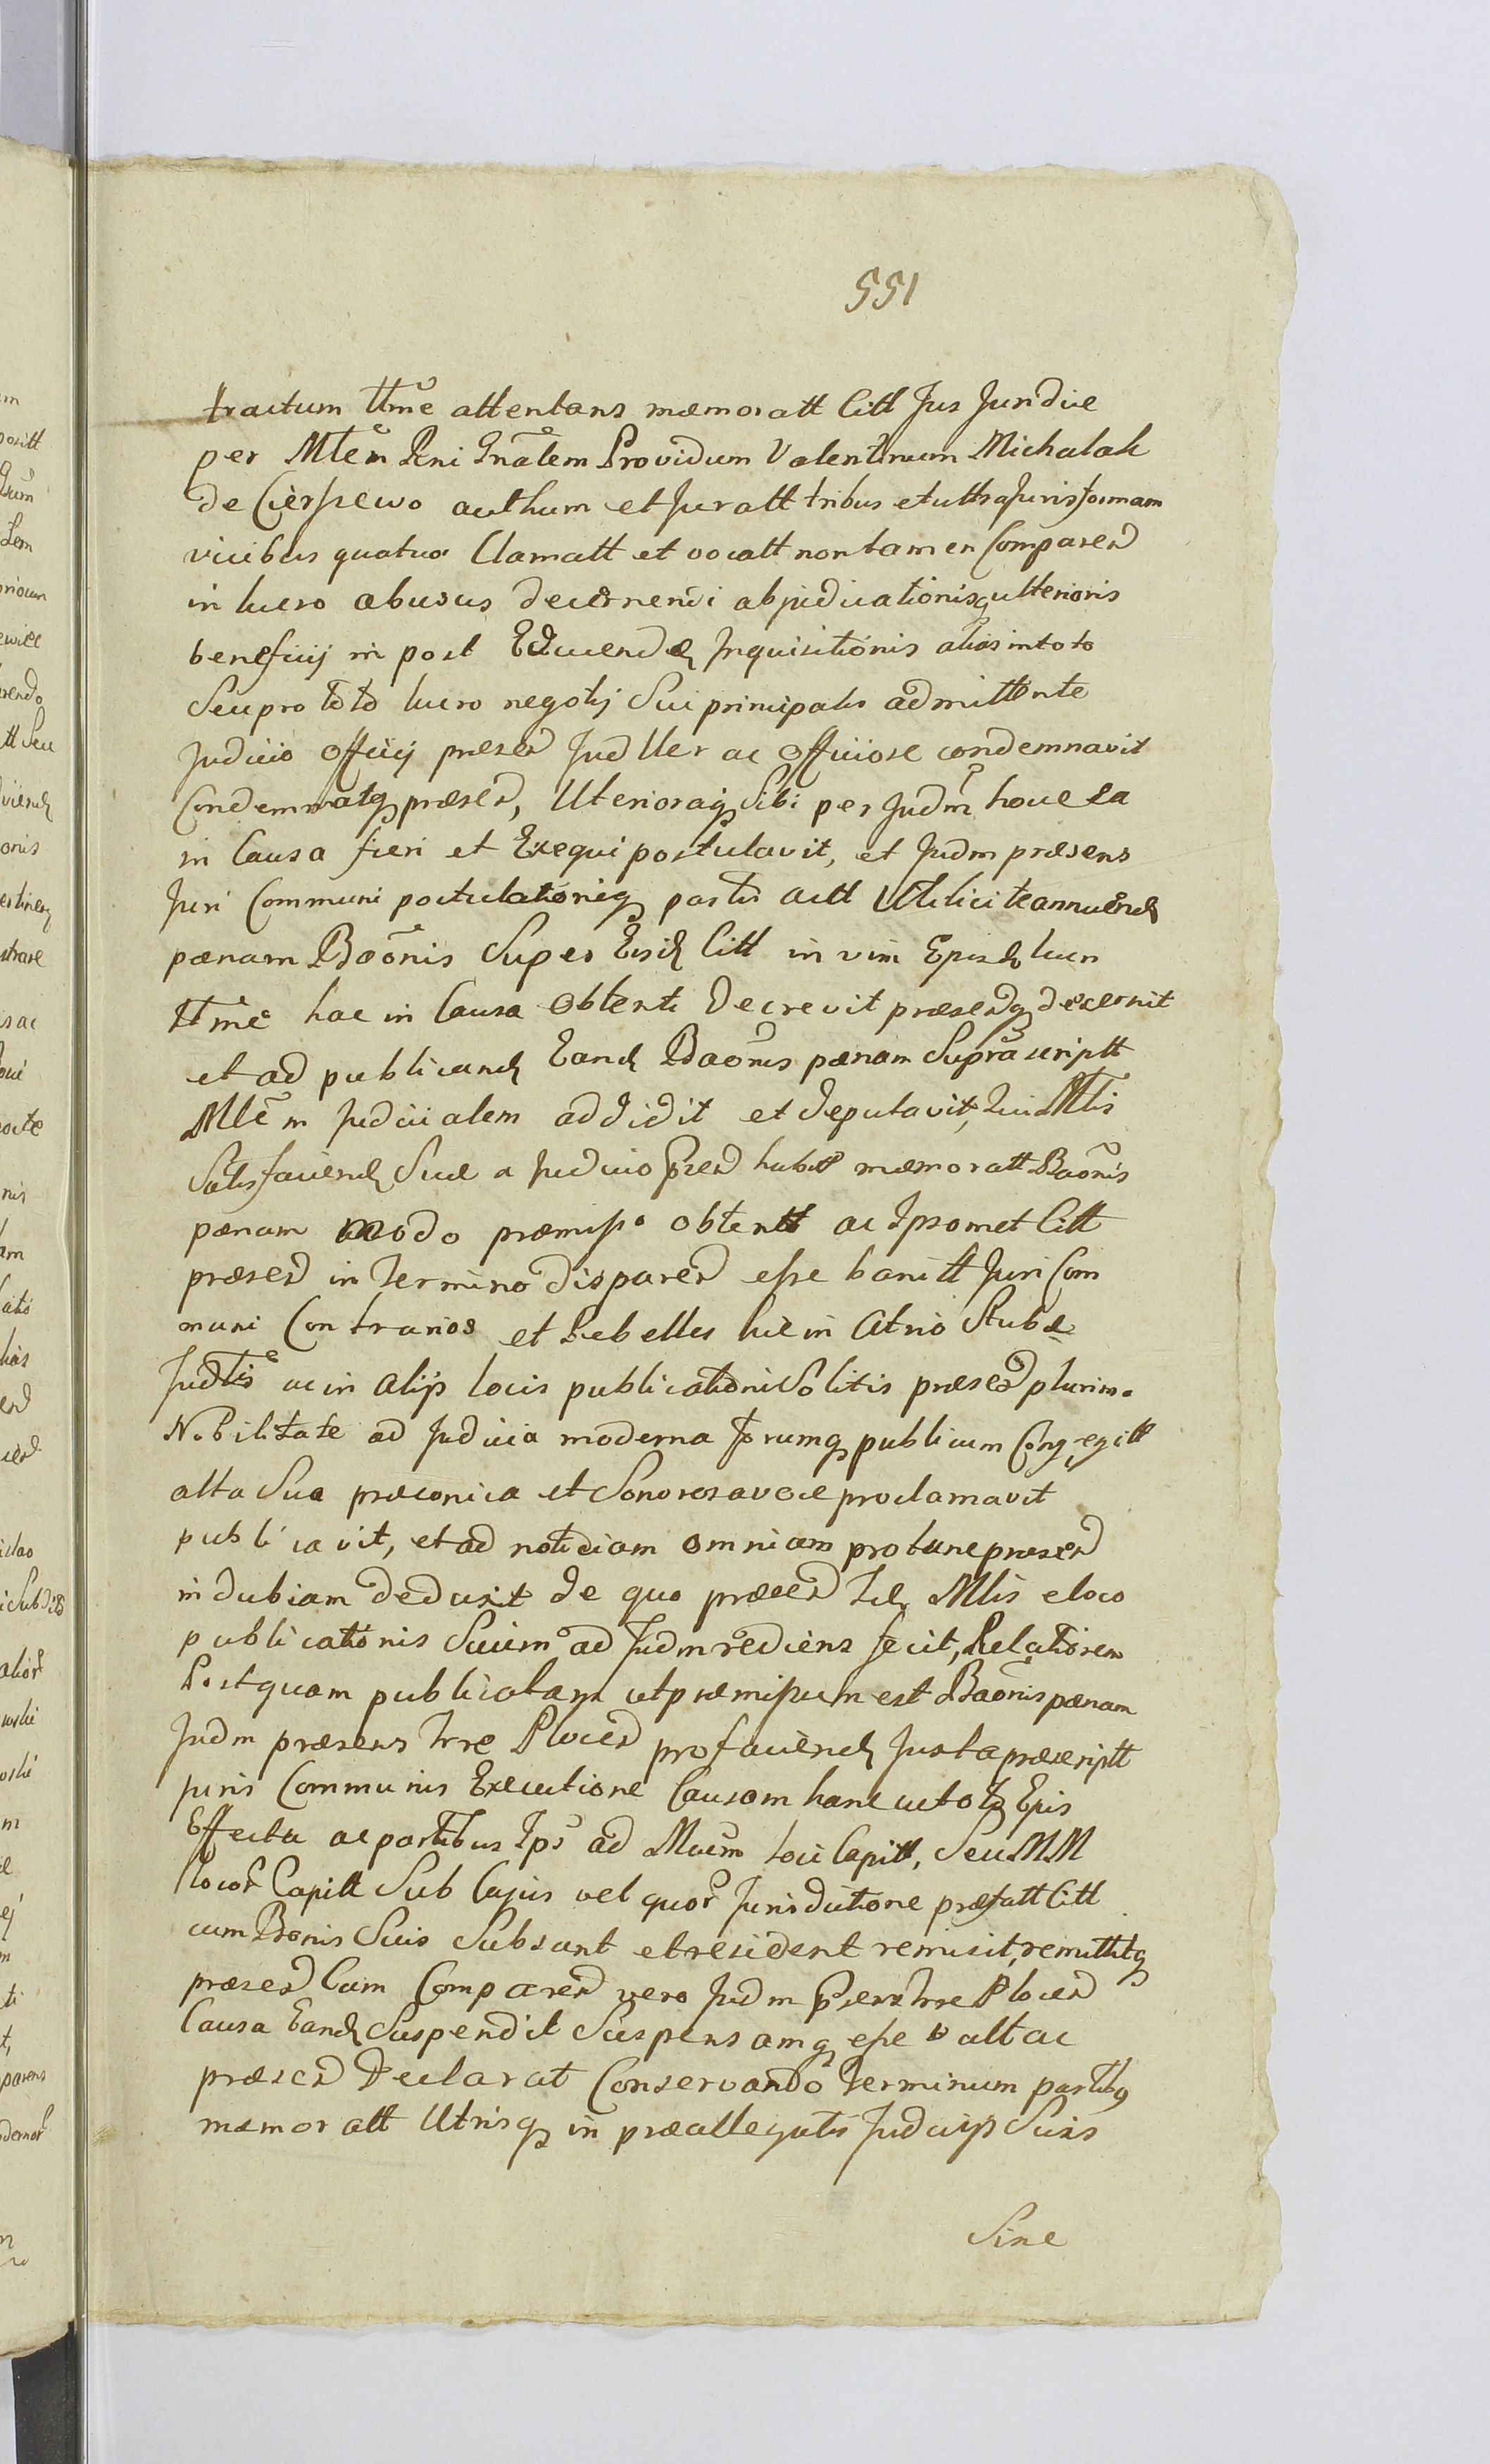 551
tractum ttme attentans memoratt Citt Jus Juridice
per Mtem Rni Gnalem Providum Valentinum Michalak
de Cierpiewo authum et Juratt tribus et ultra Juris formam
vicibus quatuor Clamatt et vocatt non tamen Comparen
in lucro abusus decernendi abjudicationisq ulterioris
beneficij in post Educendae Inquisitionis alias in toto
Seu pro toto lucro negotij Sui principalis admittente
Judicio officij praesen Judller ac officiose condemnavit
Condemnatq praesen, Ulterioraq Sibi per Judm hocce ea
in Causa fieri et Exequi postulavit, et Judm praesens
Juri Communi postulationiq partis actt Utilicite annuend
paenam Baonis Super Eisd Citt in vim Episd lucri
ttme hac in Causa Obtenti decrevit praesenq decernit
et ad publicand Eand Baonis paenam Suprascriptt
Mtem Judicialem addidit et deputavit, qui Mtis
Satisfaciend Suae a Judicio Psen habitt memoratt Baonis
paenam modo praemisso obtentt ac Ipsomet Citt
praesen in Termino disparen esse banitt Juri Com
muni Contrarios et Rebelles hic in Atrio Stubae
Judlis ac in alijs locis publicationi Solitis praesen plurima
Nobilitate ad Judicia moderna forumq publicum Congregitt
alta Sua praeconica et Sonorosa voce proclamavit
publicavit, et ad noticiam omniam pro tunc praesen
indubiam deduxit de quo praesen Id Mtis e loco
publicationis Suum ad Judm rediens fecit, Relationem
Postquam publicatam ut praemissum est Baonis paenam
Judm praesens Trre Plocen pro faciend Juxta praescriptt
juris Communis Executione Causam hanc cu toto Epis
Effectu ac partibus Ips ad Mcum loci Capitt, Seu MM
locor Capitt Sub Cujus vel quor Jurisdictione praefatt Citt
cum Bonis Suis Subsunt et resident remisit, remittitq
praesen Cum Comparen vero Judm Psens Trre Plocen
Causa Eand Suspendit Suspensamq esse vult ac
praesen Declarat Conservando Terminum partibq
memoratt Utrisq in praeallegatis Judicijs Suis
Sine